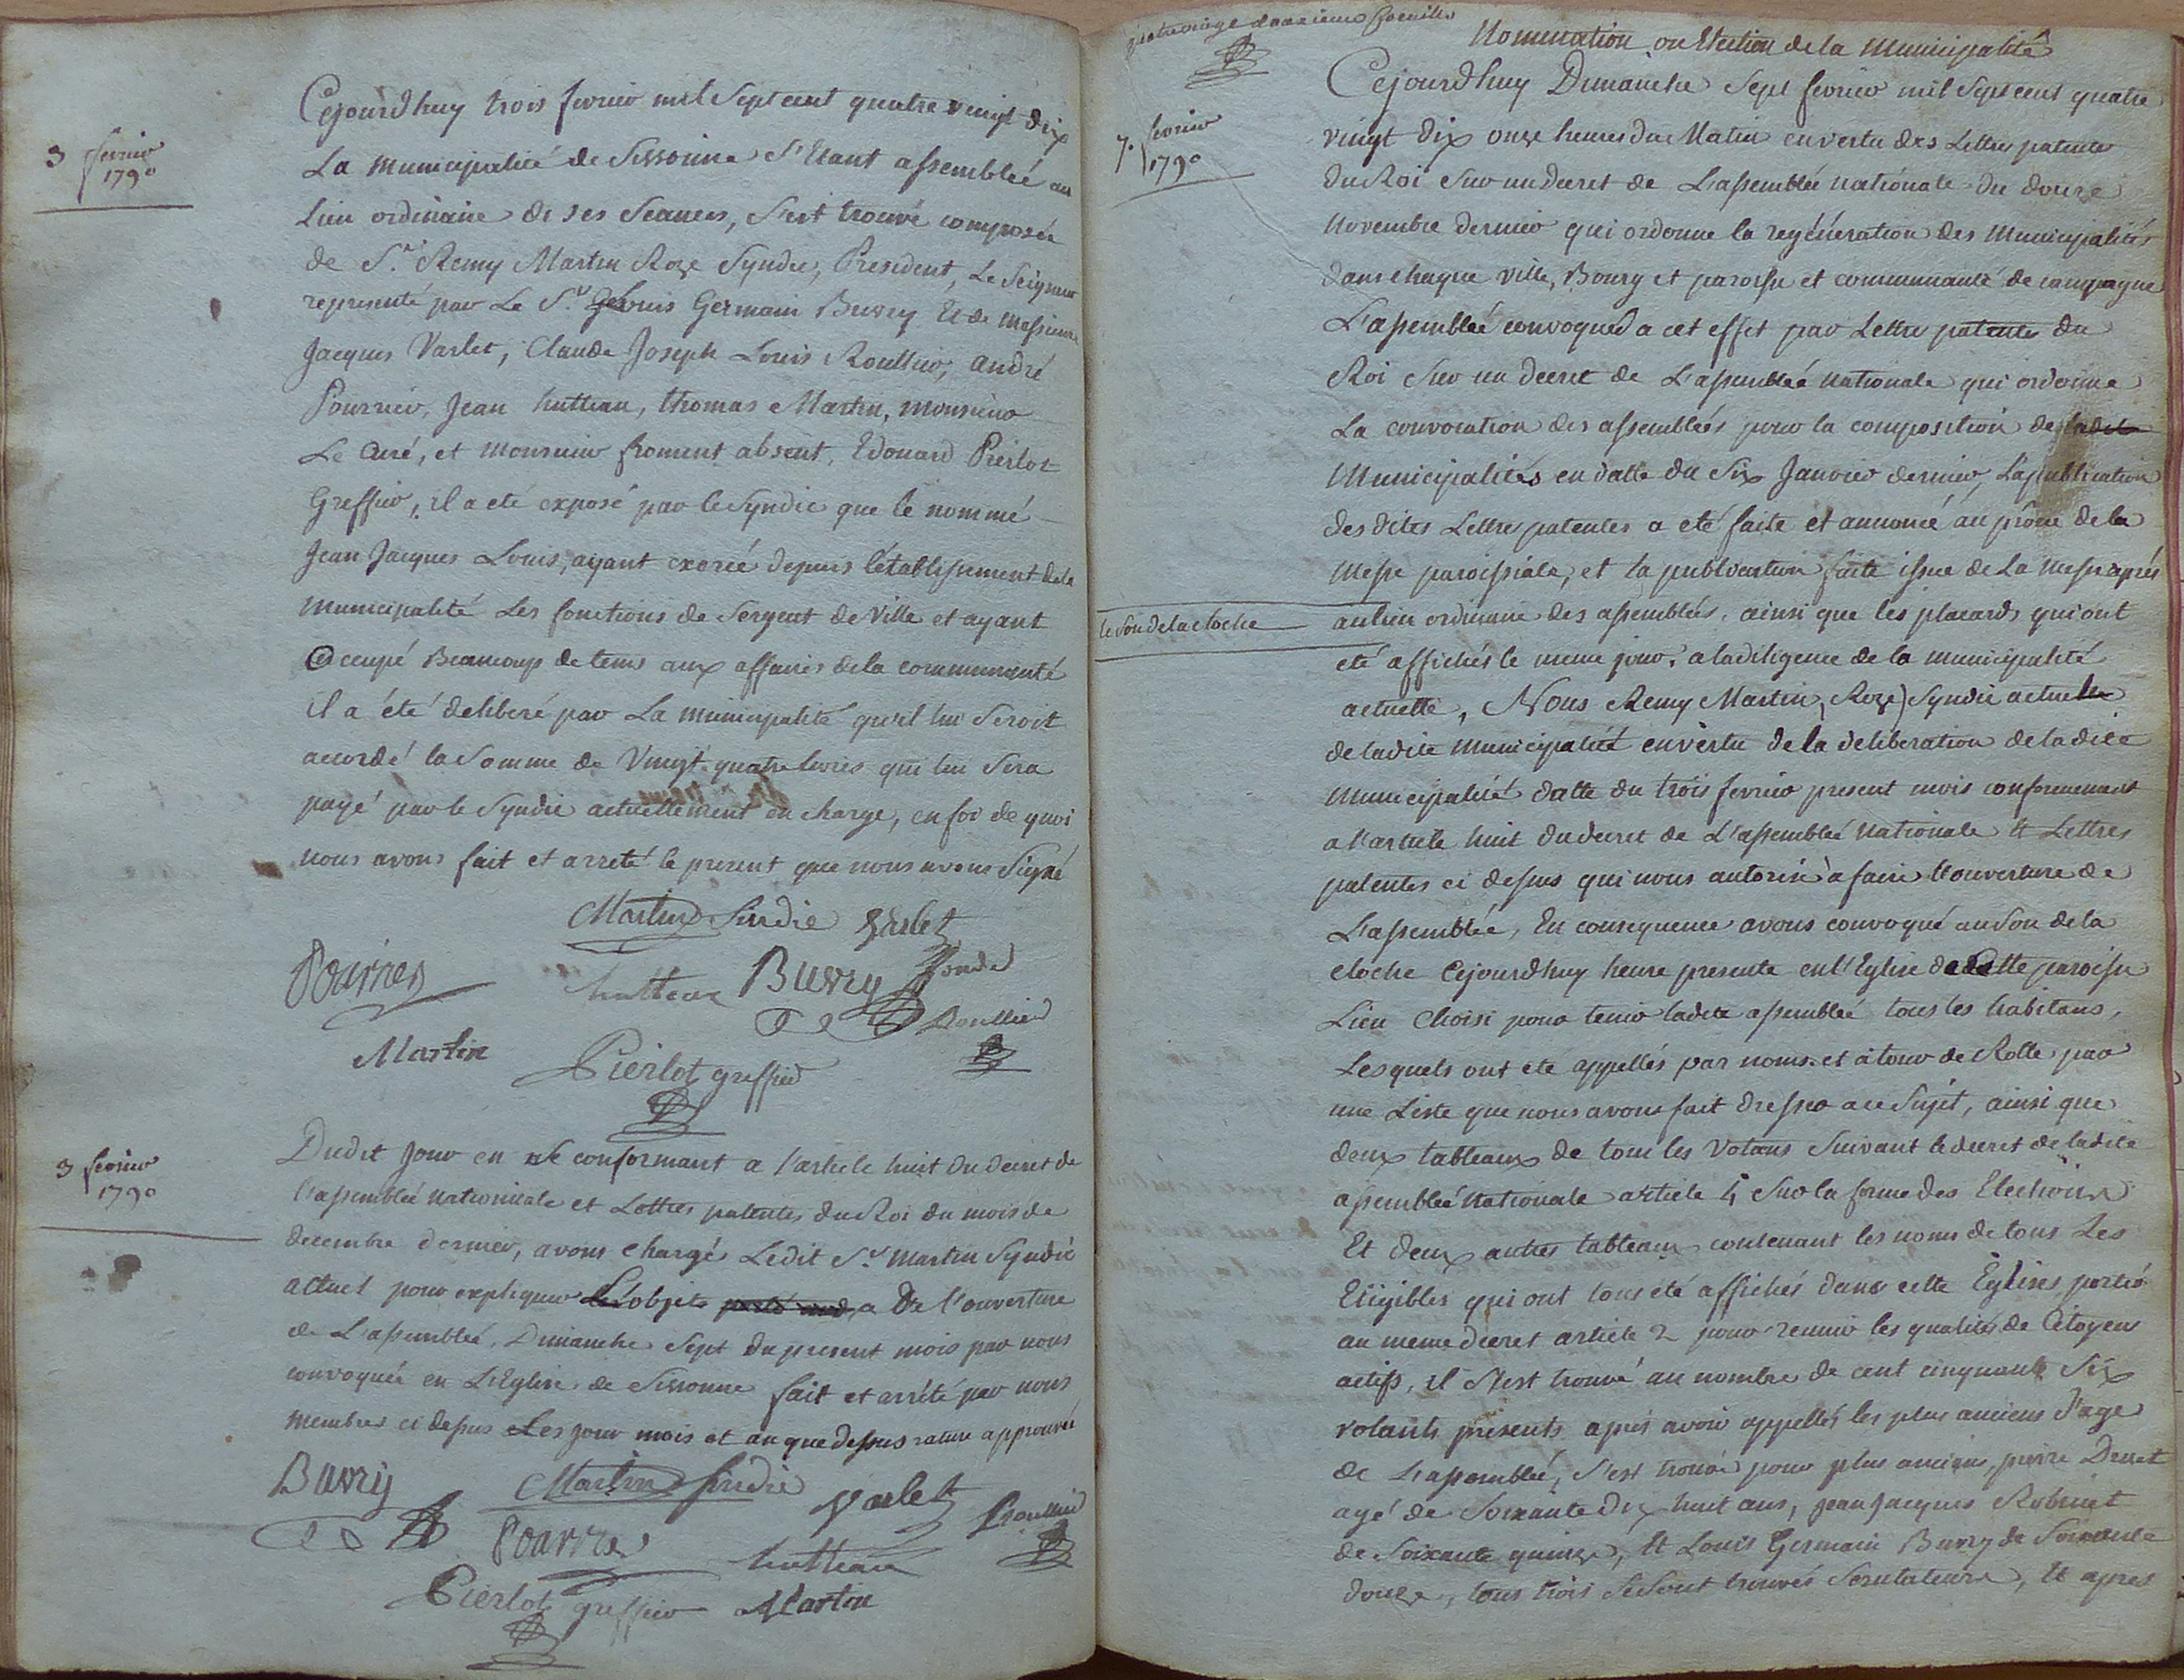 3 fevrier
1790
Cejourdhuy trois fevrier mil Sept cent quatre vingt dix
La municipalité de Sissonne S'Etant assembleé au
Lieu ordinaire de ses Seances, S'est trouvé composée
de S.r Remy Martin Roze Syndic, President, Le Seigneur
representé par Le S.r Louis Germain Buvry Et de messieurs
Jacques Varlet, Claude Joseph Louis Roullier, andré
Pourrier, Jean hutteau, thomas Martin, monsieur
Le Curé, et monsieur froment absent, Edouard Pierlot
Greffier, il a eté exposé par le Syndic que le nommé
Jean Jacques Louis, ayant exercé depuis l'établissement de la
municipalité Les fonctions de Sergent de Ville et ayant
occupé Beaucoup de tems aux affaires de la communauté
il a été deliberé par La municipalité qu'il lui Seroit
accordé la Somme de Vingt quatre livres qui lui Sera
payé par le Syndic actuellement en charge, en foi de quoi
nous avons fait et arreté le present que nous avons Signé
Martin Sindic Varlet
Pourrier hutteau Buvry
Roullier
Martin Pierlot greffier
3 fevrier
1790
Dudit Jour en se conformant a l'article huit du decret de
l'assembleé nationnale et Lettres patentes du Roi du mois de
decembre dernier, avons chargé Ledit S.r Martin Syndic
actuel pour expliquer L'objet de l'ouverture
de L'assembleé, Dimanche Sept du present mois par nous
convoquée en L'Eglise de Sissonne fait et arrété par nous
membres ci dessus Les jour mois et an que dessus rature approuvée
Buvry Martin sindic Varlet Roullier
Pourrier hutteau
Pierlot greffier Martin
quatrevingt deuxieme feuille
Nomination ou Election de la municipalité
7. fevrier
1790
Cejourdhuy Dimanche Sept fevrier mil Sept cent quatre
vingt dix onze heures du Matin en vertu des Lettres patentes
du Roi Sur un decret de L'assemblée nationale du douze
Novembre dernier qui ordonne la regénération des municipalités
dans chaque ville, Bourg et paroisse et communauté de campagne
L'assembleé convoqueé a cet effet par Lettres patentes du
Roi Sur un decret de L'assembleé nationale qui ordonne
La convocation des assembleés pour la composition de ladite
Municipalités en datte du Six Janvier dernier, La publication
des dites Lettres patentes a eté faite et annoncé au prône de la
messe paroissiale, et la publication faite issue de La messe aprés
le son de la cloche
au lieu ordinaire des assembleés, ainsi que les placards qui ont
eté affichés le meme jour, a la diligence de la municipalité
actuelle, Nous Remy Martin, Roze) Syndic actuel
de ladite municipalité en vertu de la deliberation de ladite
municipalité datte du trois fevrier present mois conformement
a l'article huit du decret de L'assembleé nationale Et Lettres
patentes ci dessus qui nous autorise à faire L'ouverture de
L'assembleé, En consequence avons convoqué au Son de la
cloche Cejourdhuy heure presente en l'Eglise de Cette paroisse
Lieu Choisi pour tenir ladite assembleé tous les habitans,
Lesquels ont eté appellés par noms et à tour de Rolle par
une Liste que nous avons fait dresser a ce Sujet, ainsi que
deux tableaux de tous les Votans Suivant le decret de ladite
assembleé nationale article 4 Sur la forme des Elections
Et deux autres tableaux contenant les noms de tous Les
Eligibles qui ont tous été affichés dans cette Eglises, porté
au meme decret article 2 pour reunir les qualités de Citoyens
actifs, il S'est trouvé au nombre de cent cinquante Six
votants presents, aprés avoir appellés les plus anciens d'age
de L'assembleé, S'est trouvé pour plus ancien, pierre Druet
agé de Soixante dix huit ans, Jean Jacques Robinet
de Soixante quinze, Et Louis Germain Buvry de Soixante
douze, tous trois se Sont trouvés Scrutateurs, Et aprés